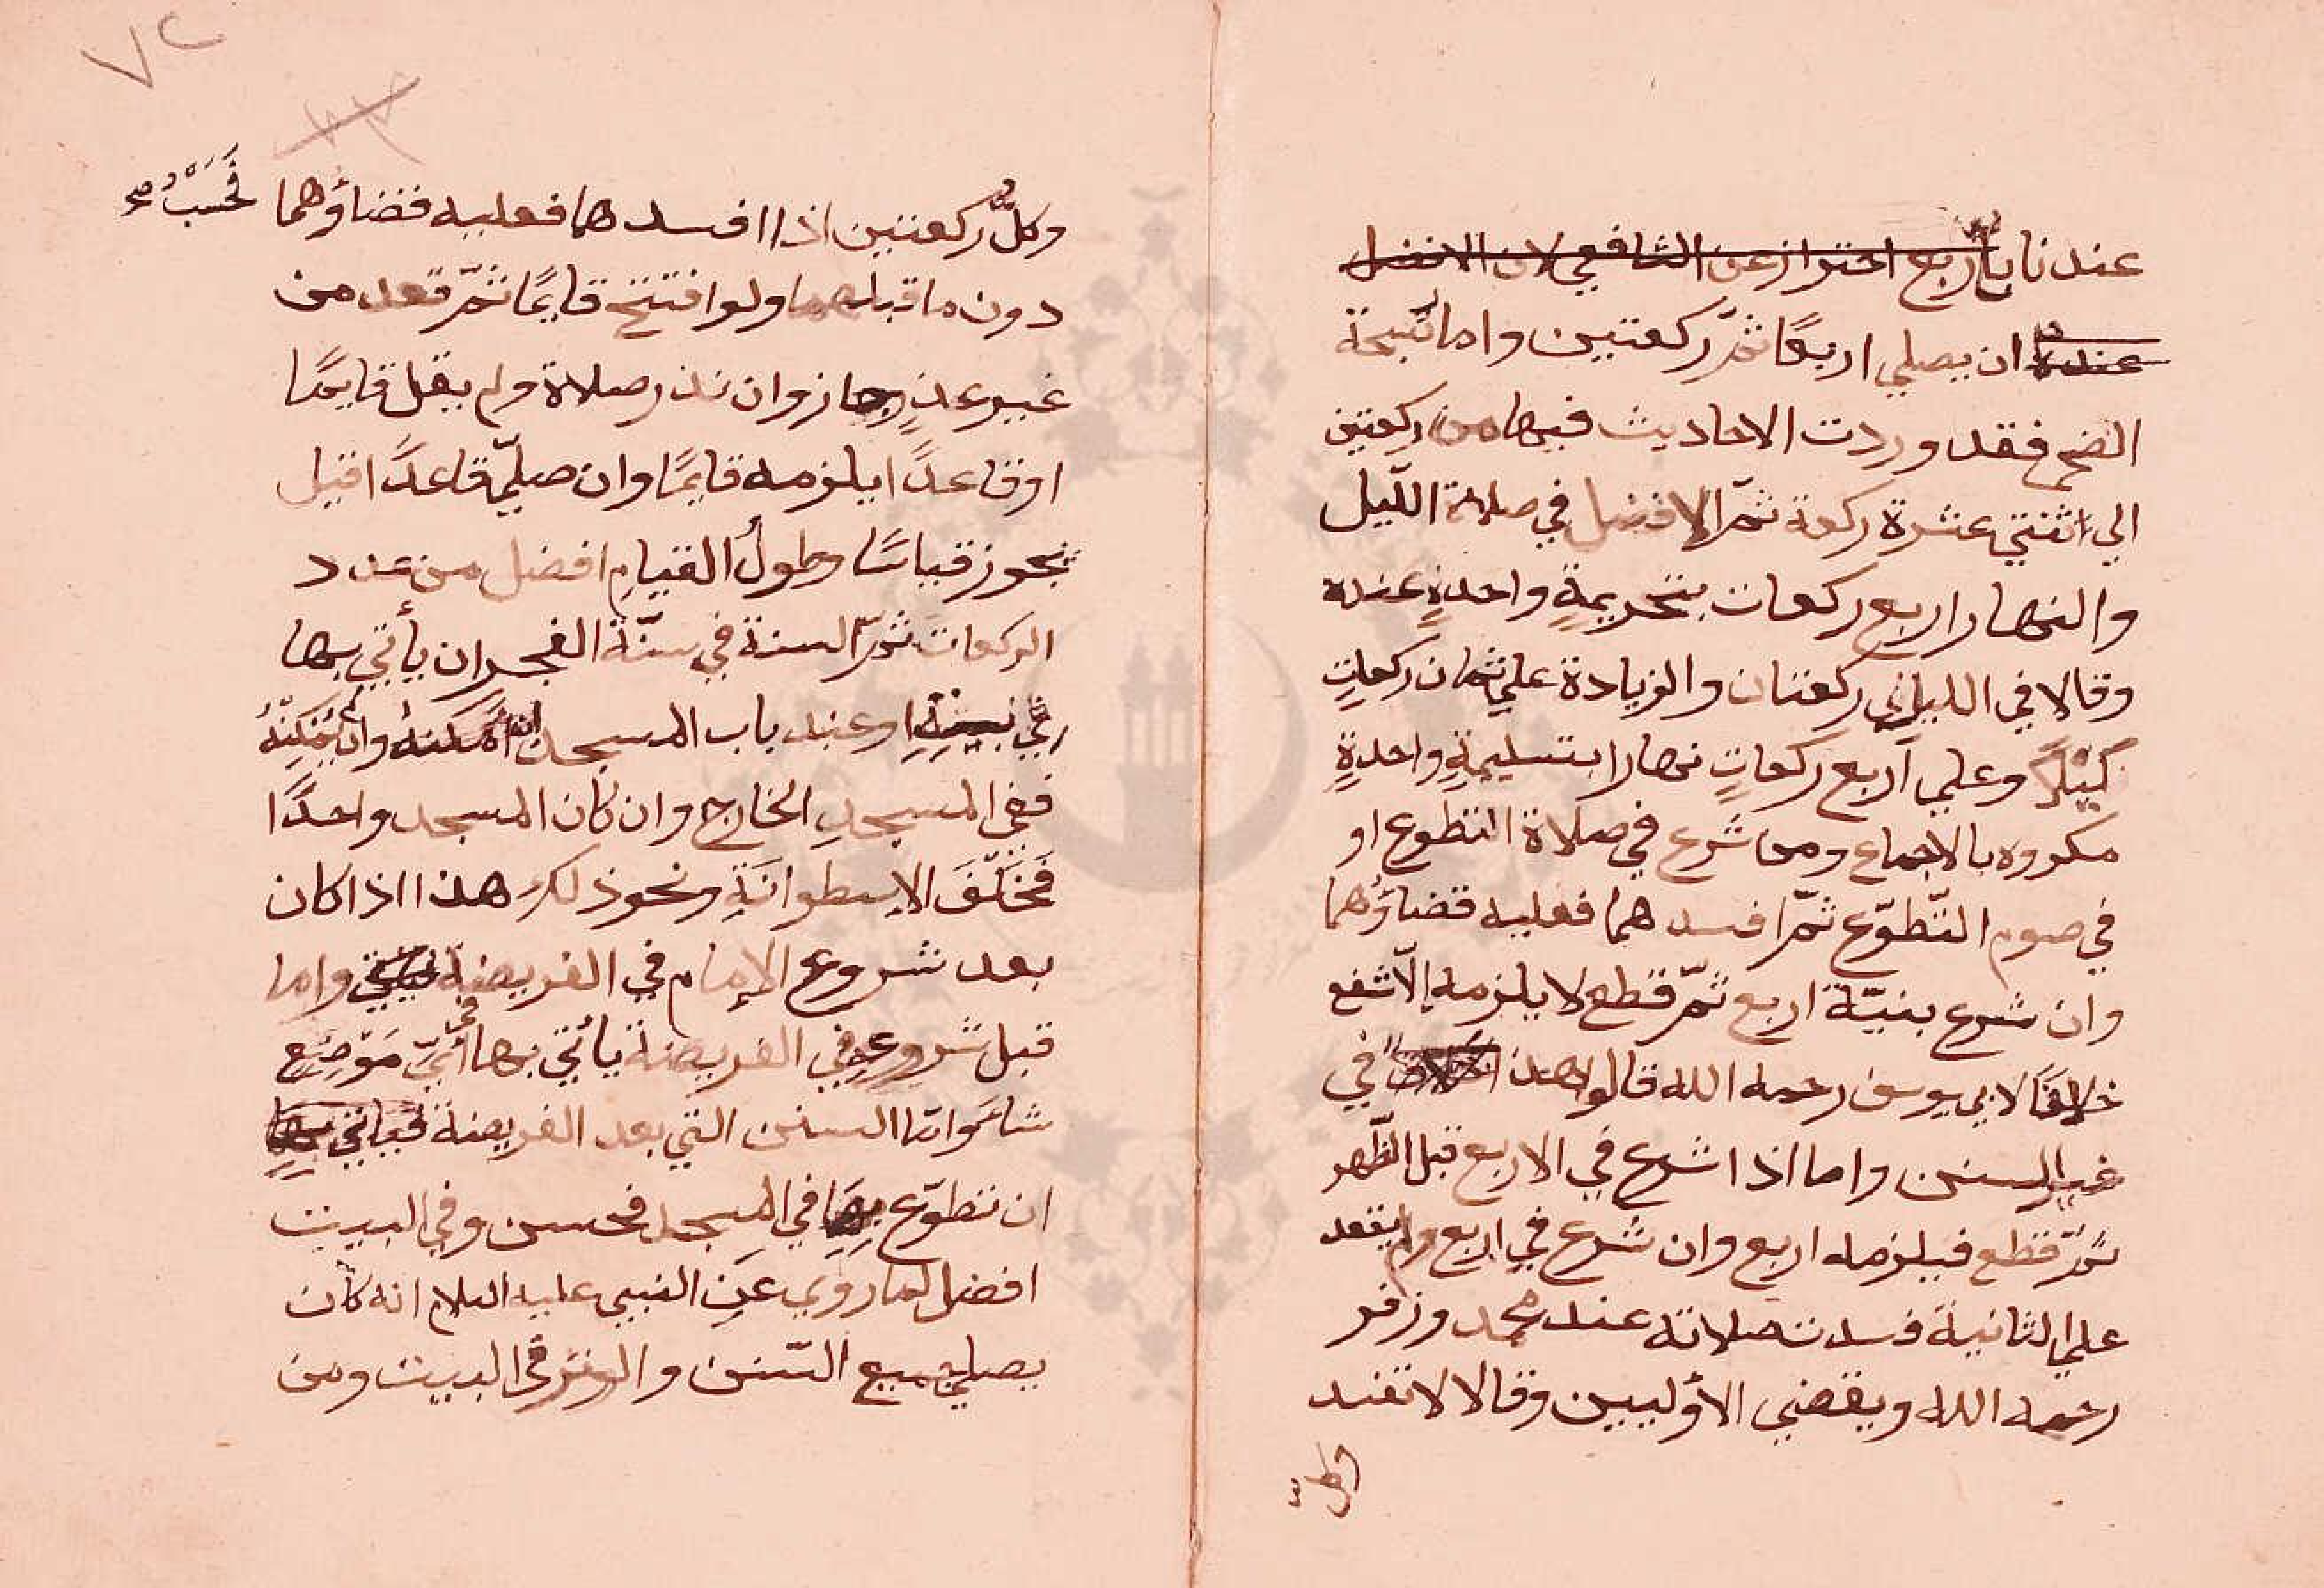 عندنا باربع احتراز عن الشافعي لان الافضل
عنده ان يصلي اربعًا ثمّ ركعتين واما سُبحة
الضحى فقد وردت الاحاديث فيها من ركعتين
الي اثنتي عشرة ركعة ثمّ الافضل في صلاة اللّيل
والنهار اربع ركعات بتحريمةٍ واحدةٍ عنده
وقالا في الليالي ركعتان والزيادة علي ثمان ركعاتٍ
ليْلًا وعلي اربع ركعاتٍ نهارا بتسليمةٍ واحدةٍ
مكروه بالاجماع ومن شرع في صلاة التطوع او
في صوم التّطوّع ثمّ افسدهما فعليه قضاؤُهما
وان شرع بنيّة اربع ثمّ قطع لا يلزمه إلّا شفع
خلافًا لابي يوسف رحمه الله قالوا هذا في
غير السنن واما اذا شرع في الاربع قبل الظّهر
ثمّ قطع فيلزمه اربع وان شرع في اربع ولم يقعد
علي الثانية فسدت صلاته عند محمد وزفر
رحمه الله ويقضي الأوليين وقالا لا تفسد
وكلُّ ركعتين اذا افسدهما فعليه قضاؤهما فَحَسْبُ صح
دون ما قبلهما ولو افتتح قايمًا ثمّ قعد من
غير عذرٍ جاز وان نذر صلاة ولم يقل قايمًا
او قاعدًا يلزمه قايمًا وان صلّي قاعدًا قيل
يجوز قياسًا وطولُ القيامِ افضل من عدد
الركعات ثمّ السنة في سنّة الفجر ان يأتي بها
في بيتِهِ او عند باب المسجد ان امكنه وان لم يُمْكِنْهُ
ففي المسجدِ الخارج وان كان المسجد واحدًا
فَخَلْفَ الاسطوانَةِ ونحو ذلك هذا اذا كان
بعد شروع الإمام في الفريضة واما
قبل شروعه في الفريضة يأتي بها في أيّ مَوْضِعٍ
شاء وامّا السنن التي بعد الفريضة فياتي بها
ان تتطوّع بها في المسجد فحسن وفي البيت
افضل لما روي عَن النبي عليه السلام انه كان
يصلي جميع السّنن والوتر في البيت ومن